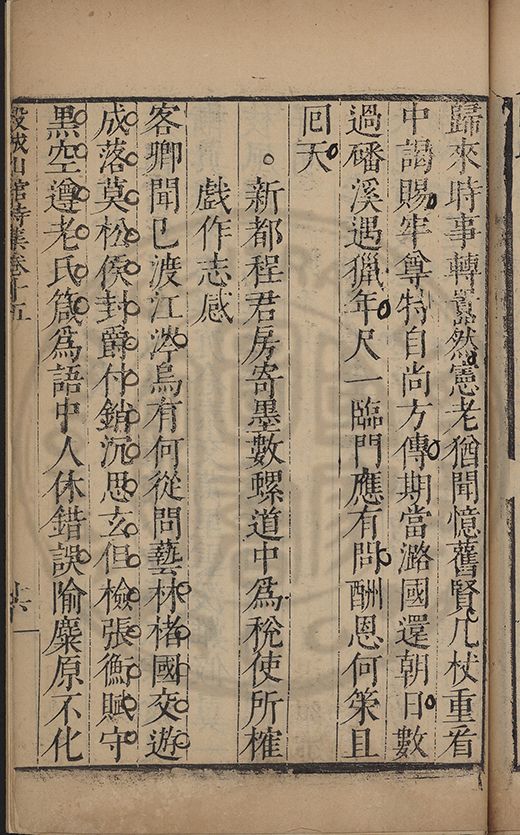 歸來時事轉囂然憲老猶聞憶舊賢几杖重看
中謁賜牢尊特自尚方傳期當潞國還朝日數
過磻溪遇獵年尺一臨門應有問酬恩何策且
回天
新都程君房寄墨數螺道中為稅使所榷
戲作志感
客卿聞已渡江涔烏有何從問藝林楮國交遊
成落莫松侯封爵付銷沉思玄但檢張衡賦守
黑空遵老氏箴為語中人休錯誤隃麋原不化
穀城山館詩集卷十五
十六